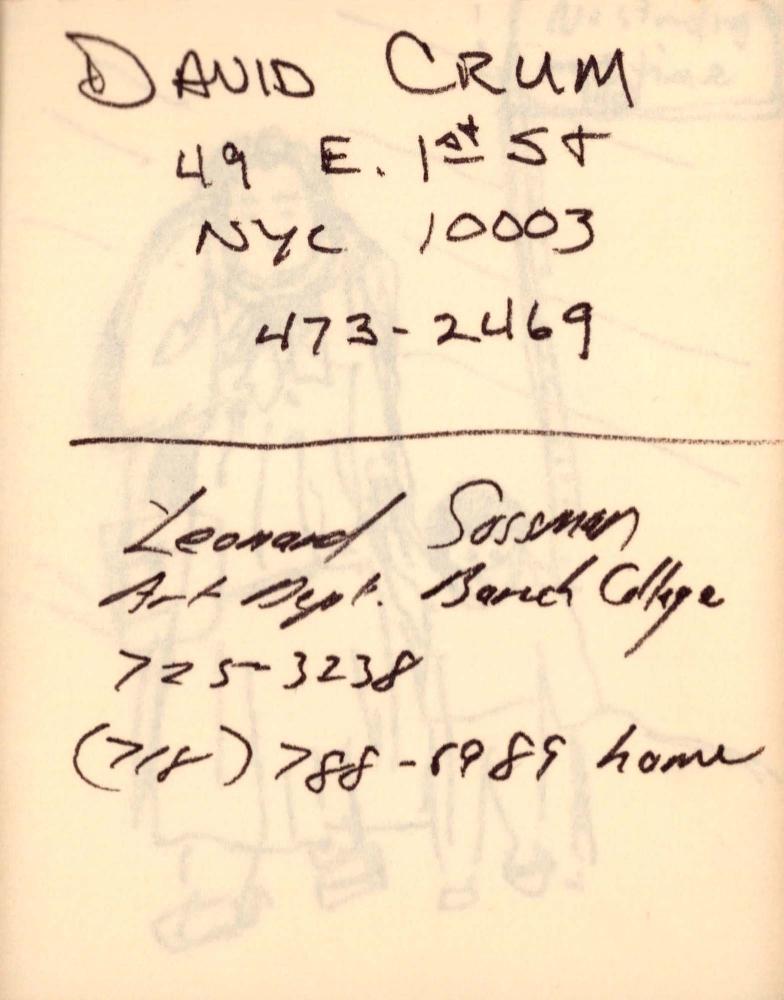 DAVID CRUM
49 E. 1st St
NYC 10003
473-2469
Leonard Sussman
Art Dept. Baruch College
725-3238
(718) 788-8989 home
No standing
time